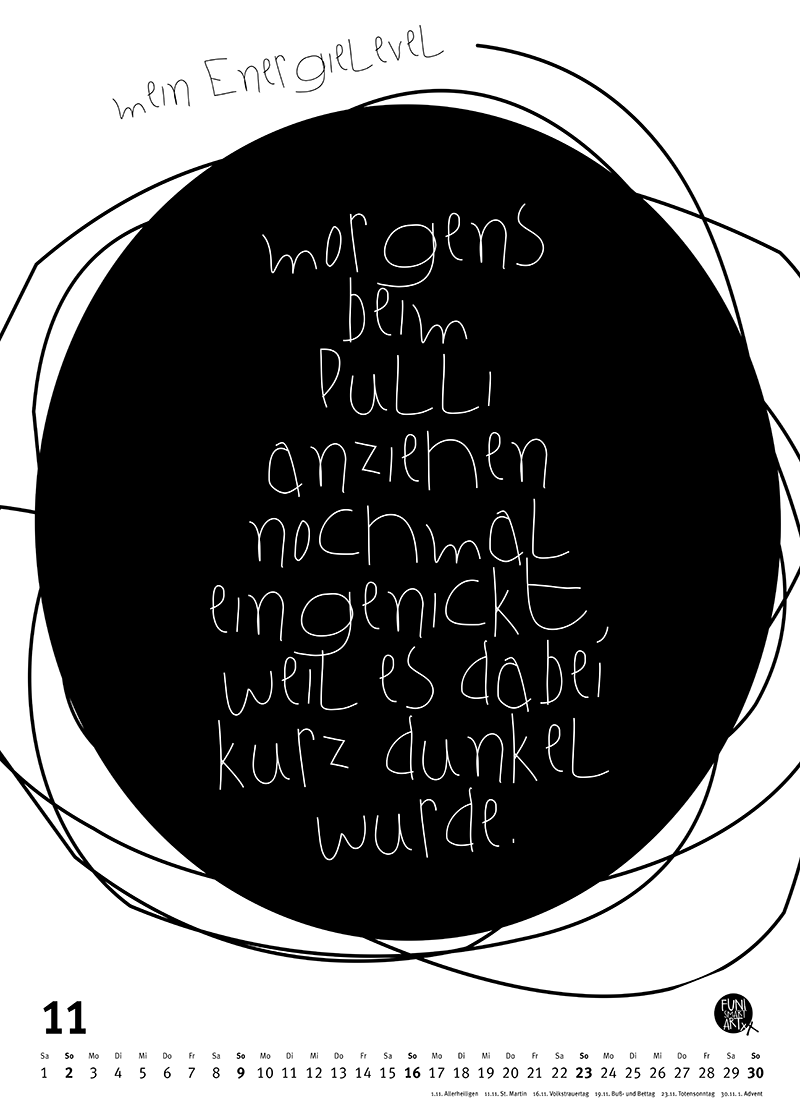 mein Energielevel
morgens
beim
Pulli
anziehen
nochmal
eingenickt,
weil es dabei
kurz dunkel
wurde.
11
FUNI
SMART
ART
Sa So Mo Di Mi Do Fr Sa So Mo Di Mi Do Fr Sa So Mo Di Mi Do Fr Sa So Mo Di Mi Do Fr Sa So
1 2 3 4 5 6 7 8 9 10 11 12 13 14 15 16 17 18 19 20 21 22 23 24 25 26 27 28 29 30
1.11. Allerheiligen 11.11. St. Martin 16.11. Volkstrauertag 19.11. Buß- und Bettag 23.11. Totensonntag 30.11. 1. Advent